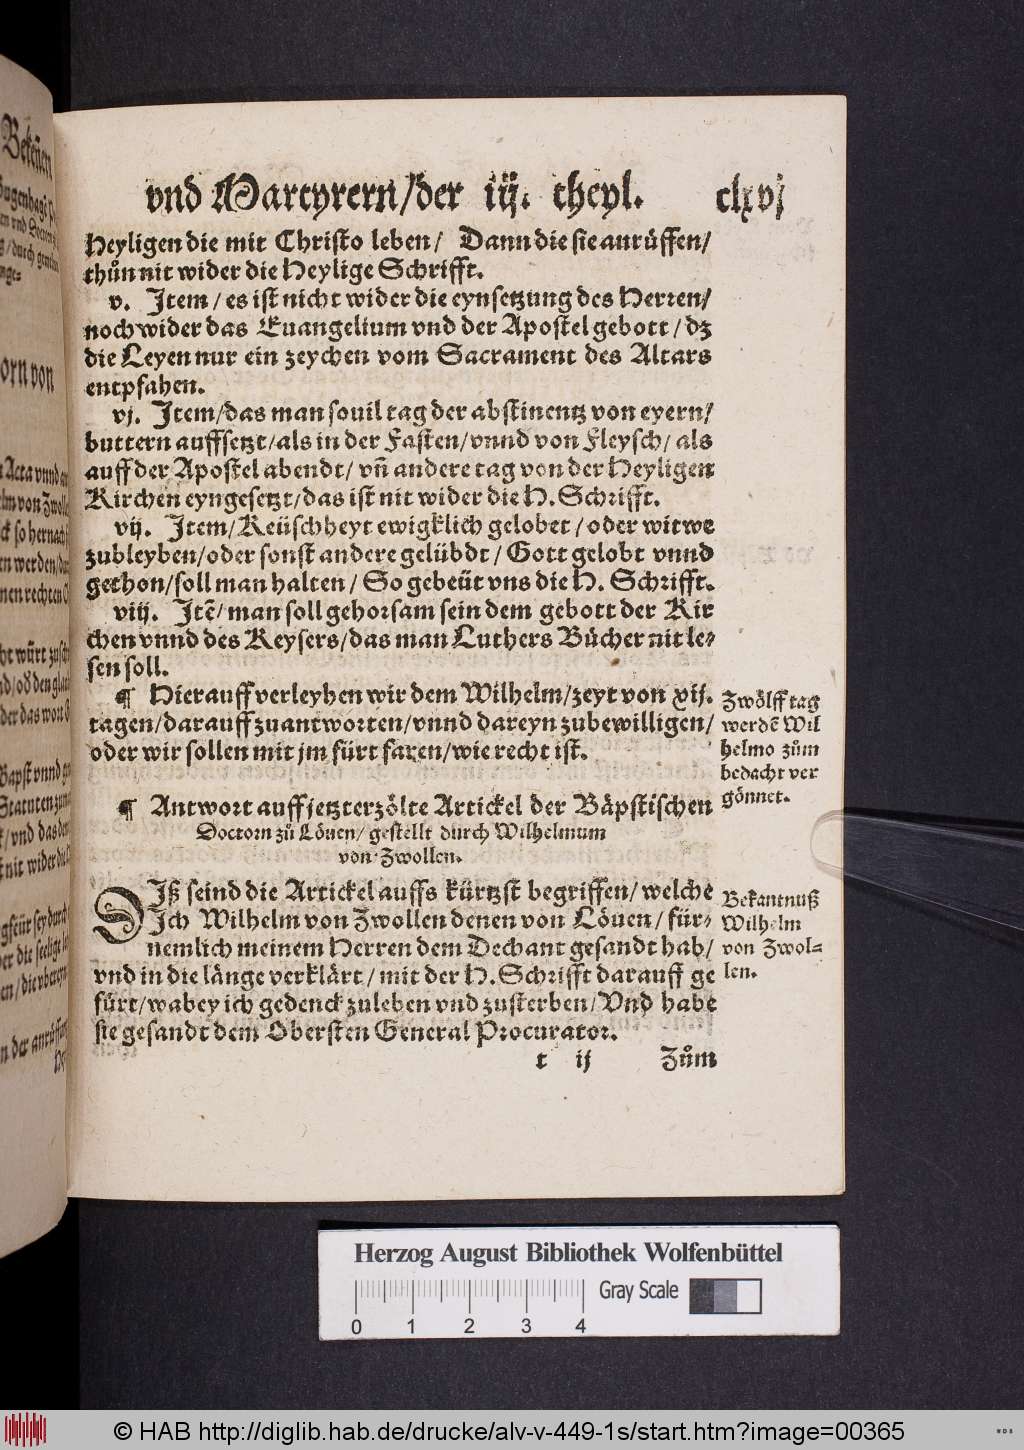 vnd Martyrern/der iij. theyl. clxvj
Heyligen die mit Christo leben/ Dann die sie anrüffen/
thůn nit wider die Heylige Schrifft.
v. Item/es ist nicht wider die eynsetzung des Herren/
noch wider das Euangelium vnd der Apostel gebott/dz
die Leyen nur ein zeychen vom Sacrament des Altars
entpfahen.
vj. Item/das man souil tag der abstinentz von eyern/
buttern auffsetzt/als in der Fasten/vnnd von Fleysch/als
auff der Apostel abendt/vñ andere tag von der Heyligen
Kirchen eyngesetzt/das ist nit wider die H. Schrifft.
vij. Item/Keüschheyt ewigklich gelobet/oder witwe
zubleyben/oder sonst andere gelübdt/Gott gelobt vnnd
gethon/soll man halten/So gebeüt vns die H. Schrifft.
viij. Itē/man soll gehorsam sein dem gebott der Kir
chen vnnd des Keysers/das man Luthers Bücher nit le-
sen soll.
¶ Hierauff verleyhen wir dem Wilhelm/zeyt von xij.
tagen/darauff zuantworten/vnnd dareyn zubewilligen/
oder wir sollen mit jm fürt faren/wie recht ist.
Zwölff tag
werdē Wil
helmo zům
bedacht ver
gönnet.
¶ Antwort auff jetzterzölte Artickel der Bäpstischen
Doctorn zů Löuen/gestellt durch Wilhelmum
von Zwollen.
DIß seind die Artickel auffs kürtzst begriffen/welche
Ich Wilhelm von Zwollen denen von Löuen/für-
nemlich meinem Herren dem Dechant gesandt hab/
vnd in die länge verklärt/mit der H. Schrifft darauff ge
fürt/wabey ich gedenck zuleben vnd zusterben/Vnd habe
sie gesandt dem Obersten General Procurator.
Bekantnuß
Wilhelm
von Zwol-
len.
t ij Zům
Herzog August Bibliothek Wolfenbüttel
Gray Scale
0 1 2 3 4
© HAB http://diglib.hab.de/drucke/alv-v-449-1s/start.htm?image=00365